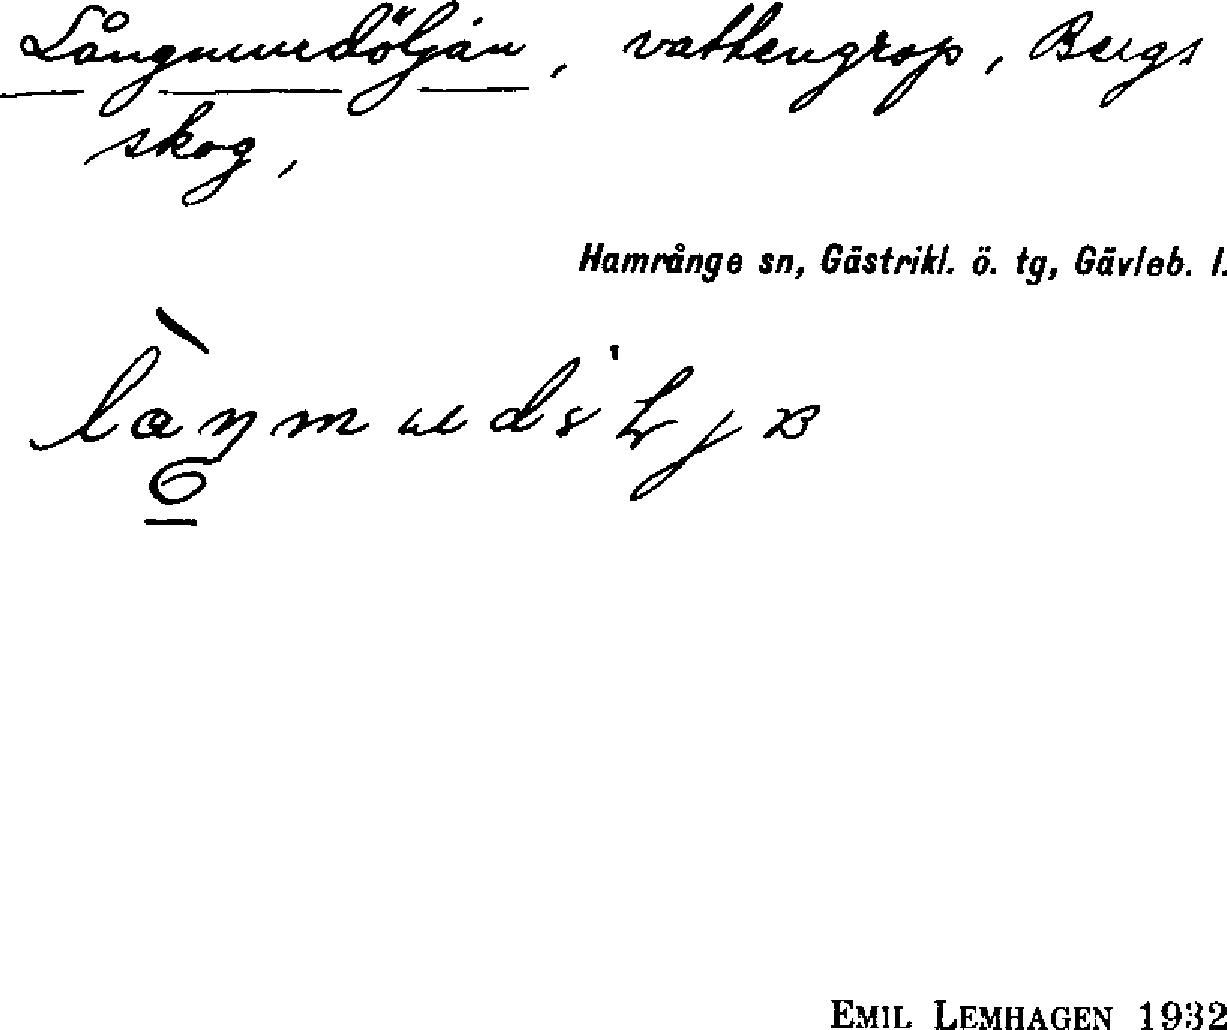 Långmurdöljan, vattengrop, Bergs
skog,
Hamrånge sn, Gästrikl. ö. tg, Gävleb. l.
EMIL LEMHAGEN 1932